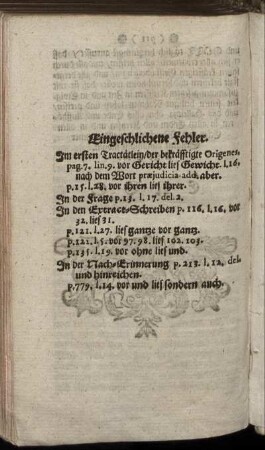 Eingeschlichene Fehler.
Im ersten Tractätlein/der bekräfftigte Origenes
pag.7. lin.9. vor Gericht lies Gewicht. l.16.
nach dem Wort præjudicia add. aber.
p.15. l.28. vor ihren lies ihrer.
In der Frage p.13. l.17. del. 2.
In den Extract-Schreiben p. 116. l.16. vor
32. lies 31.
p.121. l.27. lies gantze vor gantz.
p.121. l.5. vor 97.98. lies 102. 103.
p.135. l.19. vor ohne lies und.
In der Nach-Erinnerung p. 213. l. 12. del.
und hinreichen.
p.779. l.14. vor und lies sondern auch.